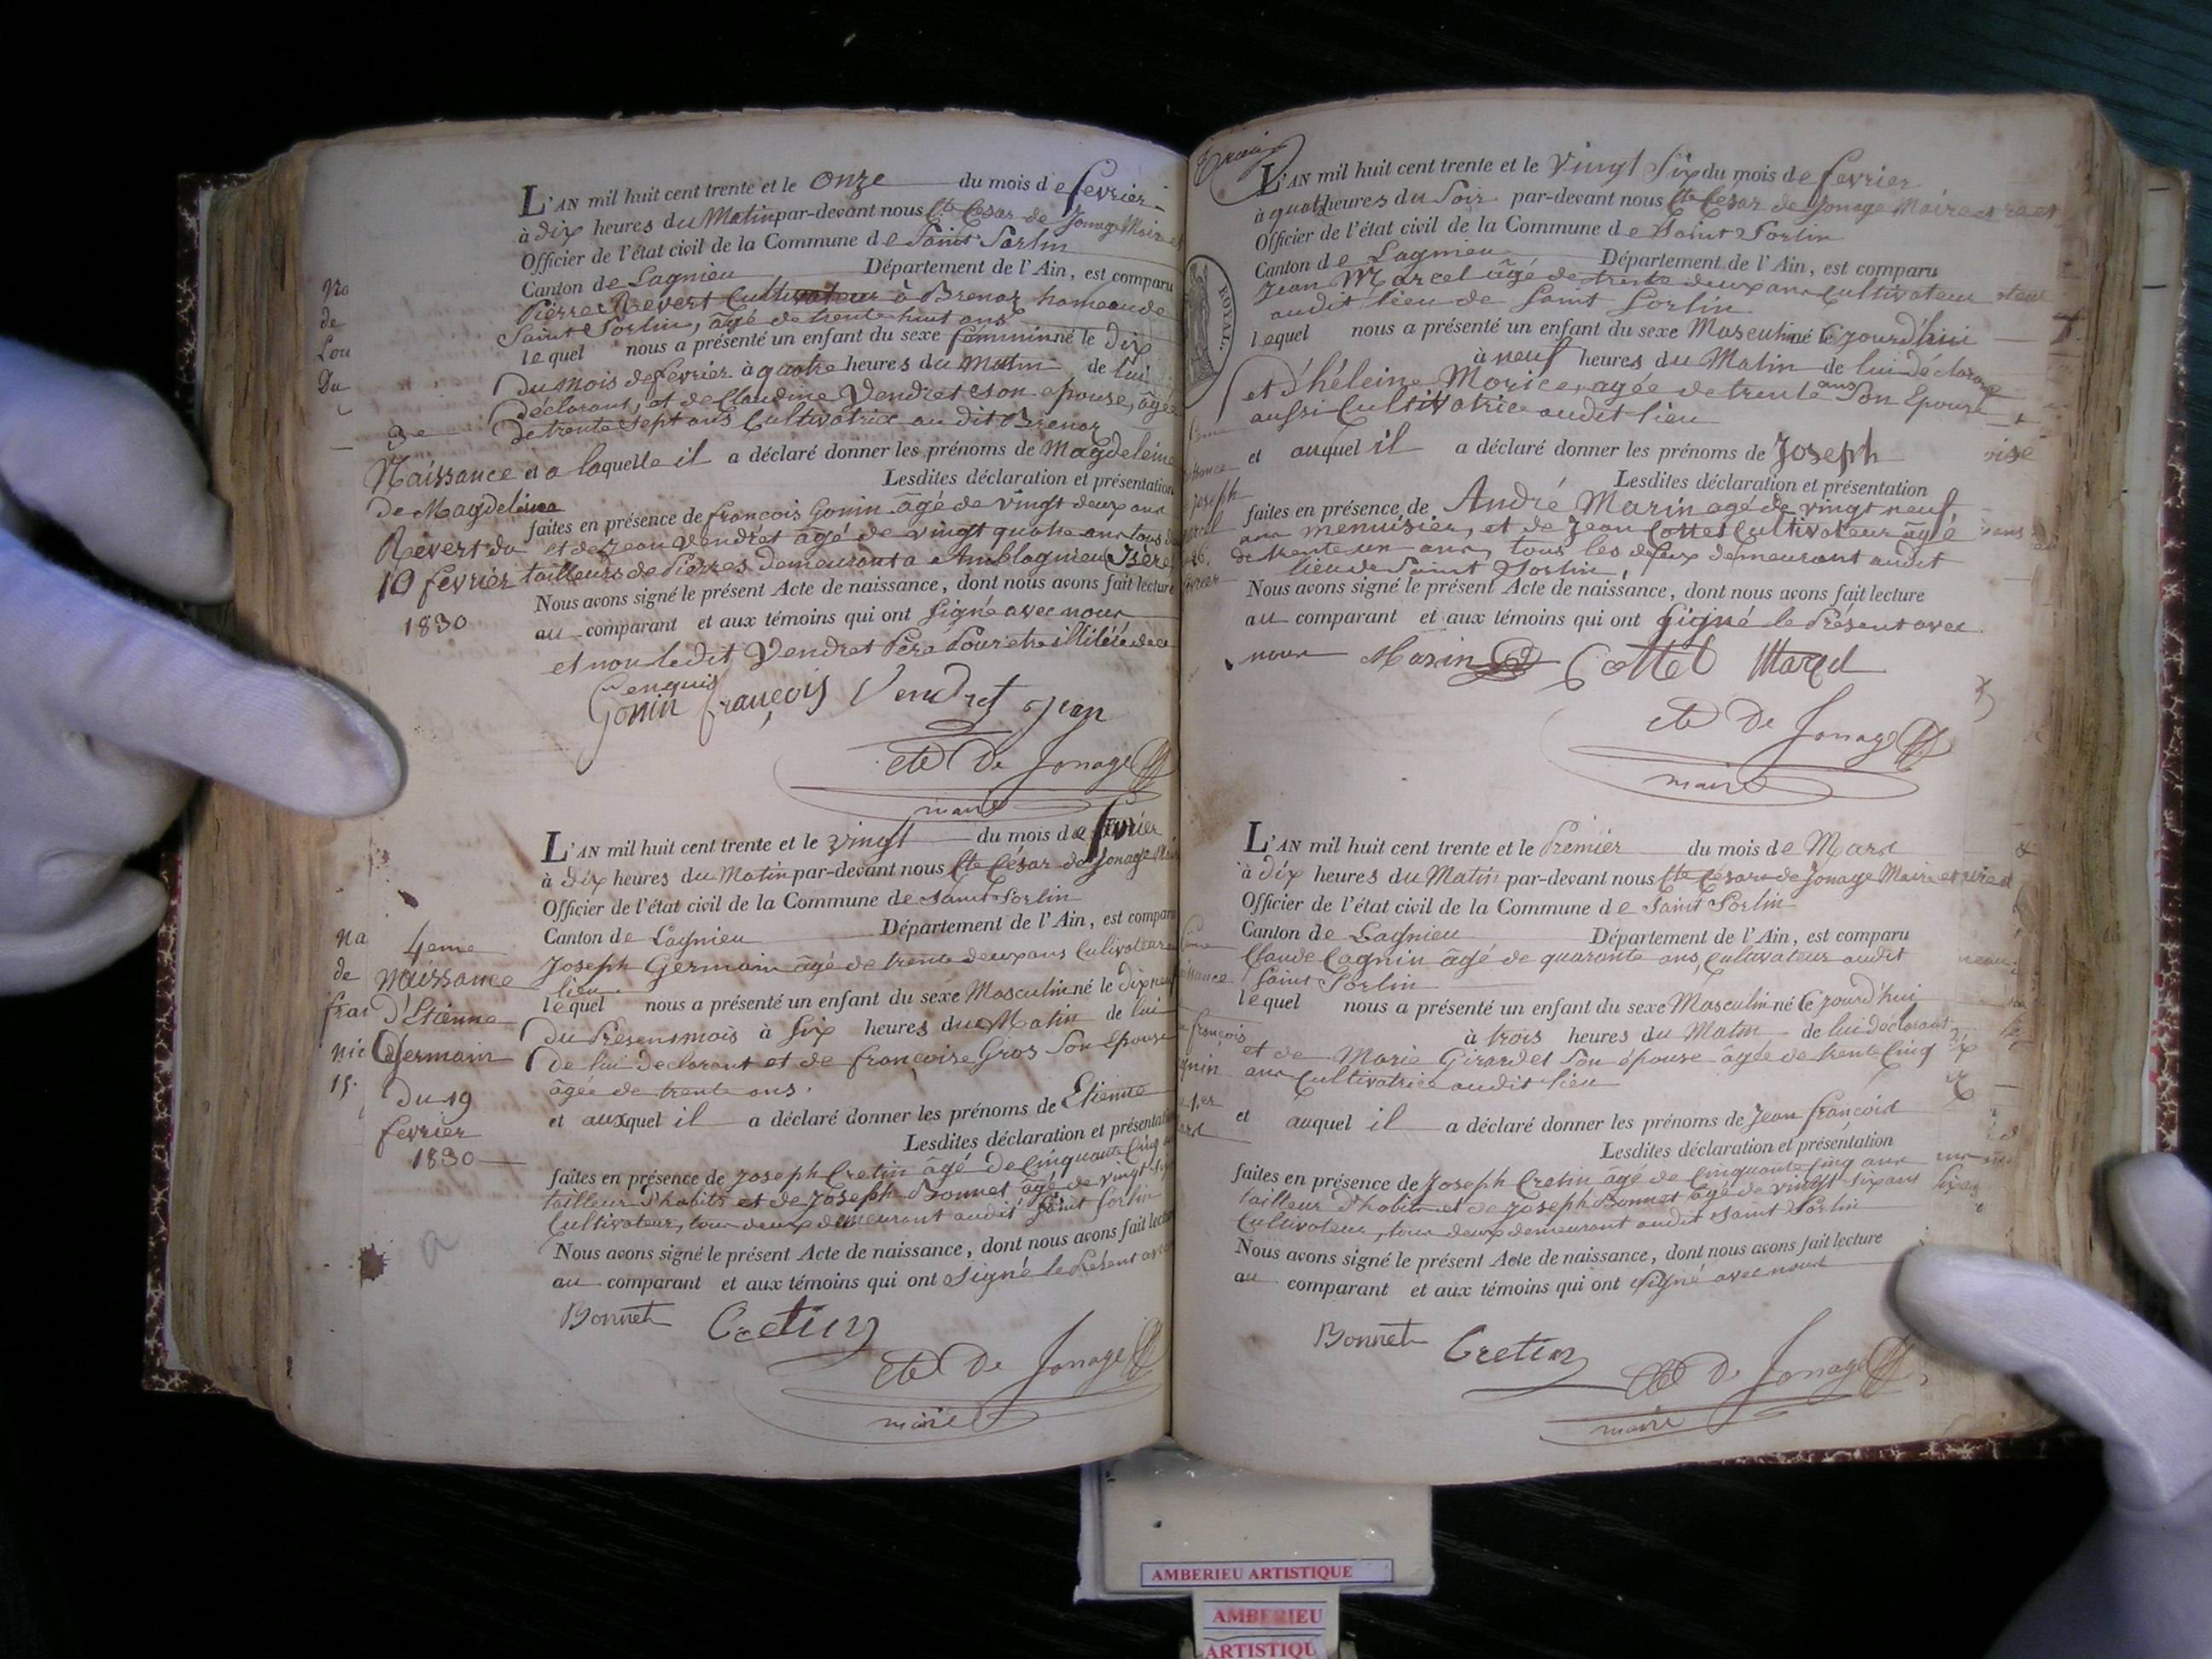 L'AN mil huit cent trente et le Onze du mois de fevrier
à dix heures du Matin par-devant nous Cte César de Jonage Maire et
Officier de l'état civil de la Commune de Saint Sorlin
Canton de Lagnieu Département de l'Ain, est comparu
Pierre Revert Cultivateur à Brenaz hameau de
Saint Sorlin, âgé de trente huit ans
lequel nous a présenté un enfant du sexe féminin né le dix
du mois de fevrier à quatre heures du Matin de lui
déclarant, et de Claudine Vendret son epouse, âgée
de trente sept ans Cultivatrice au dit Brenaz
et a laquelle il a déclaré donner les prénoms de Magdeleine
Lesdites déclaration et présentation
faites en présence de françois Gonin âgé de vingt deux ans
et de Jean Vendret âgé de vingt quatre ans tous d
tailleurs de Pierres demeurant a Amblagnieu Isère
Nous avons signé le présent Acte de naissance, dont nous avons fait lecture
au comparant et aux témoins qui ont signé avec nous
et non ledit Vendret Père Pour etre illitéré de ce
enquis
Gonin françois Vendret Jean
cte De Jonage
maire
3e
Naissance
de Magdeleine
Revert du
10 fevrier
1830
L'AN mil huit cent trente et le vingt du mois de fevrier
à dix heures du Matin par-devant nous Cte César de Jonage Mai
Officier de l'état civil de la Commune de Saint Sorlin
Canton de Lagnieu Département de l'Ain, est comparu
Joseph Germain âgé de trente deux ans Cultivateur
lieu
lequel nous a présenté un enfant du sexe Masculin né le dix neuf
du Present mois à six heures du Matin de lui
de lui Declarant et de françoise Gros Son Epouse
âgée de trente ans.
et auxquel il a déclaré donner les prénoms de Etienne
Lesdites déclaration et présentation
faites en présence de Joseph Cretin âgé de Cinquante Cinq
tailleur d'habits et de Joseph Bonnet âgé de vingt six
Cultivateur, tous deux demeurant audit Saint Sorlin
Nous avons signé le présent Acte de naissance, dont nous avons fait lecture
au comparant et aux témoins qui ont Signé le Présent avec
Bonnet Cretin
cte De Jonage
maire
4eme
Naissance
d'Etienne
Germain
Du 19
fevrier
1830
L'AN mil huit cent trente et le Vingt Six du mois de fevrier
à quatre heures du Soir par-devant nous Cte César de Jonage Maire et
Officier de l'état civil de la Commune de Saint Sorlin
Canton de Lagnieu Département de l'Ain, est comparu
Jean Marcel âgé de trente deux ans Cultivateur
audit lieu de Saint Sorlin
lequel nous a présenté un enfant du sexe Masculin né Cejourd'hui
à neuf heures du Matin de lui déclarant
et d'héleine Morice, agée de trente ans Son Epouse
aussi Cultivatrice audit lieu
et auquel il a déclaré donner les prénoms de Joseph
Lesdites déclaration et présentation
faites en présence de André Marin agé de vingt neuf
ans menuisier, et de Jean Cottet Cultivateur âgé
de trente un ans, tous les deux demeurant audit
lieu de Saint Sorlin,
Nous avons signé le présent Acte de naissance, dont nous avons fait lecture
au comparant et aux témoins qui ont signé le Présent avec
nous Marin Cottet Marcel
cte De Jonage
maire
ROYAL.
L'AN mil huit cent trente et le Premier du mois de Mars
à dix heures du Matin par-devant nous Cte César de Jonage Maire et
Officier de l'état civil de la Commune de Saint Sorlin
Canton de Lagnieu Département de l'Ain, est comparu
Claude Cagnin âgé de quarante ans, Cultivateur audit
Saint Sorlin
lequel nous a présenté un enfant du sexe Masculin né Cejourd'hui
à trois heures du Matin de lui déclarant
et de Marie Girardet Son épouse âgée de trente Cinq
ans Cultivatrice audit lieu
et auquel il a déclaré donner les prénoms de Jean françois
Lesdites déclaration et présentation
faites en présence de Joseph Cretin âgé de Cinquante Cinq ans
tailleur d'habits et de Joseph Bonnet âgé de vingt Six ans
Cultivateur, tous deux demeurant audit Saint Sorlin
Nous avons signé le présent Acte de naissance, dont nous avons fait lecture
au comparant et aux témoins qui ont signé avec nous
Bonnet Cretin cte De Jonage
maire
AMBERIEU ARTISTIQUE
AMBERIEU
ARTISTIQU